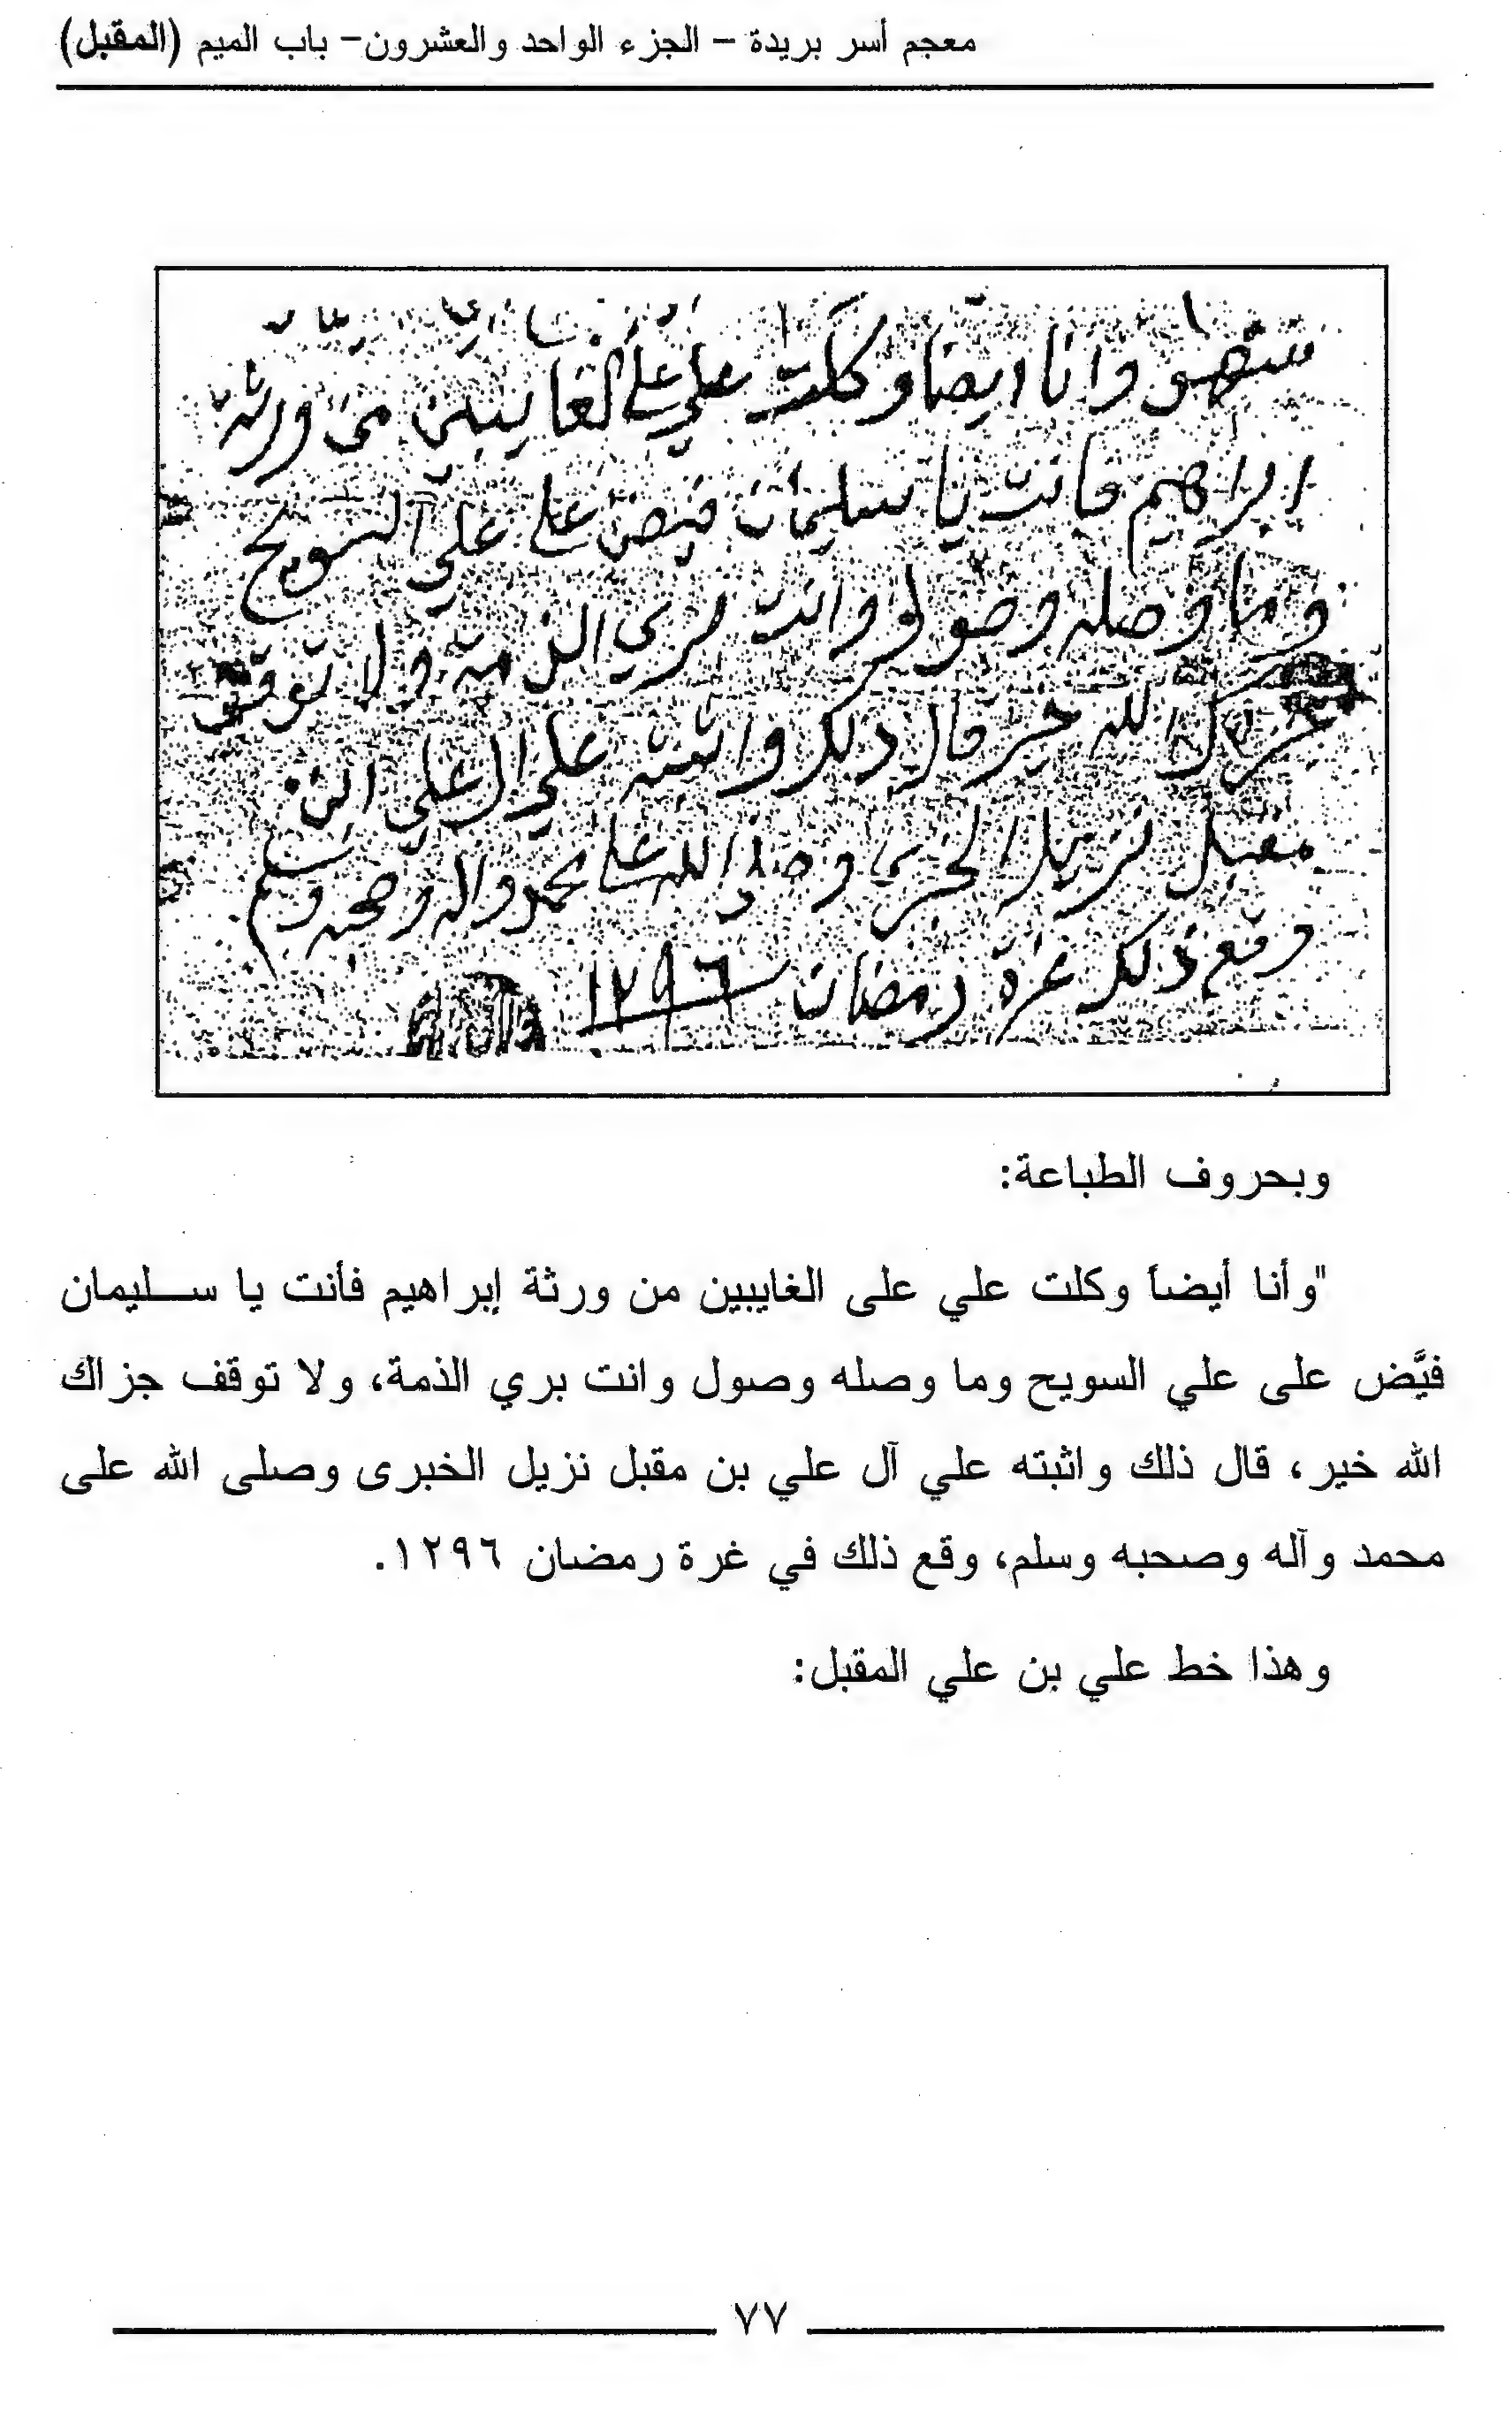 معجم أسر بريدة – الجزء الواحد والعشرون– باب الميم (المقبل)
وانا ايضا وكلت علي على الغايبين من ورثة
ابراهيم فانت يا سليمان فيض على علي السويح
وما وصله وصول وانت بري الذمة ولا توقف
جزاك الله خير قال ذلك واثبته علي ال علي ابن
مقبل نزيل الخبرى وصلى الله على محمد واله وصحبه وسلم
وقع ذلك غرة رمضان ١٢٩٦
وبحروف الطباعة:
"وأنا أيضاً وكلت علي على الغايبين من ورثة إبراهيم فأنت يا سليمان
فيَّض على علي السويح وما وصله وصول وانت بري الذمة، ولا توقف جزاك
الله خير، قال ذلك واثبته علي آل علي بن مقبل نزيل الخبرى وصلى الله على
محمد وآله وصحبه وسلم، وقع ذلك في غرة رمضان ١٢٩٦.
وهذا خط علي بن علي المقبل:
٧٧